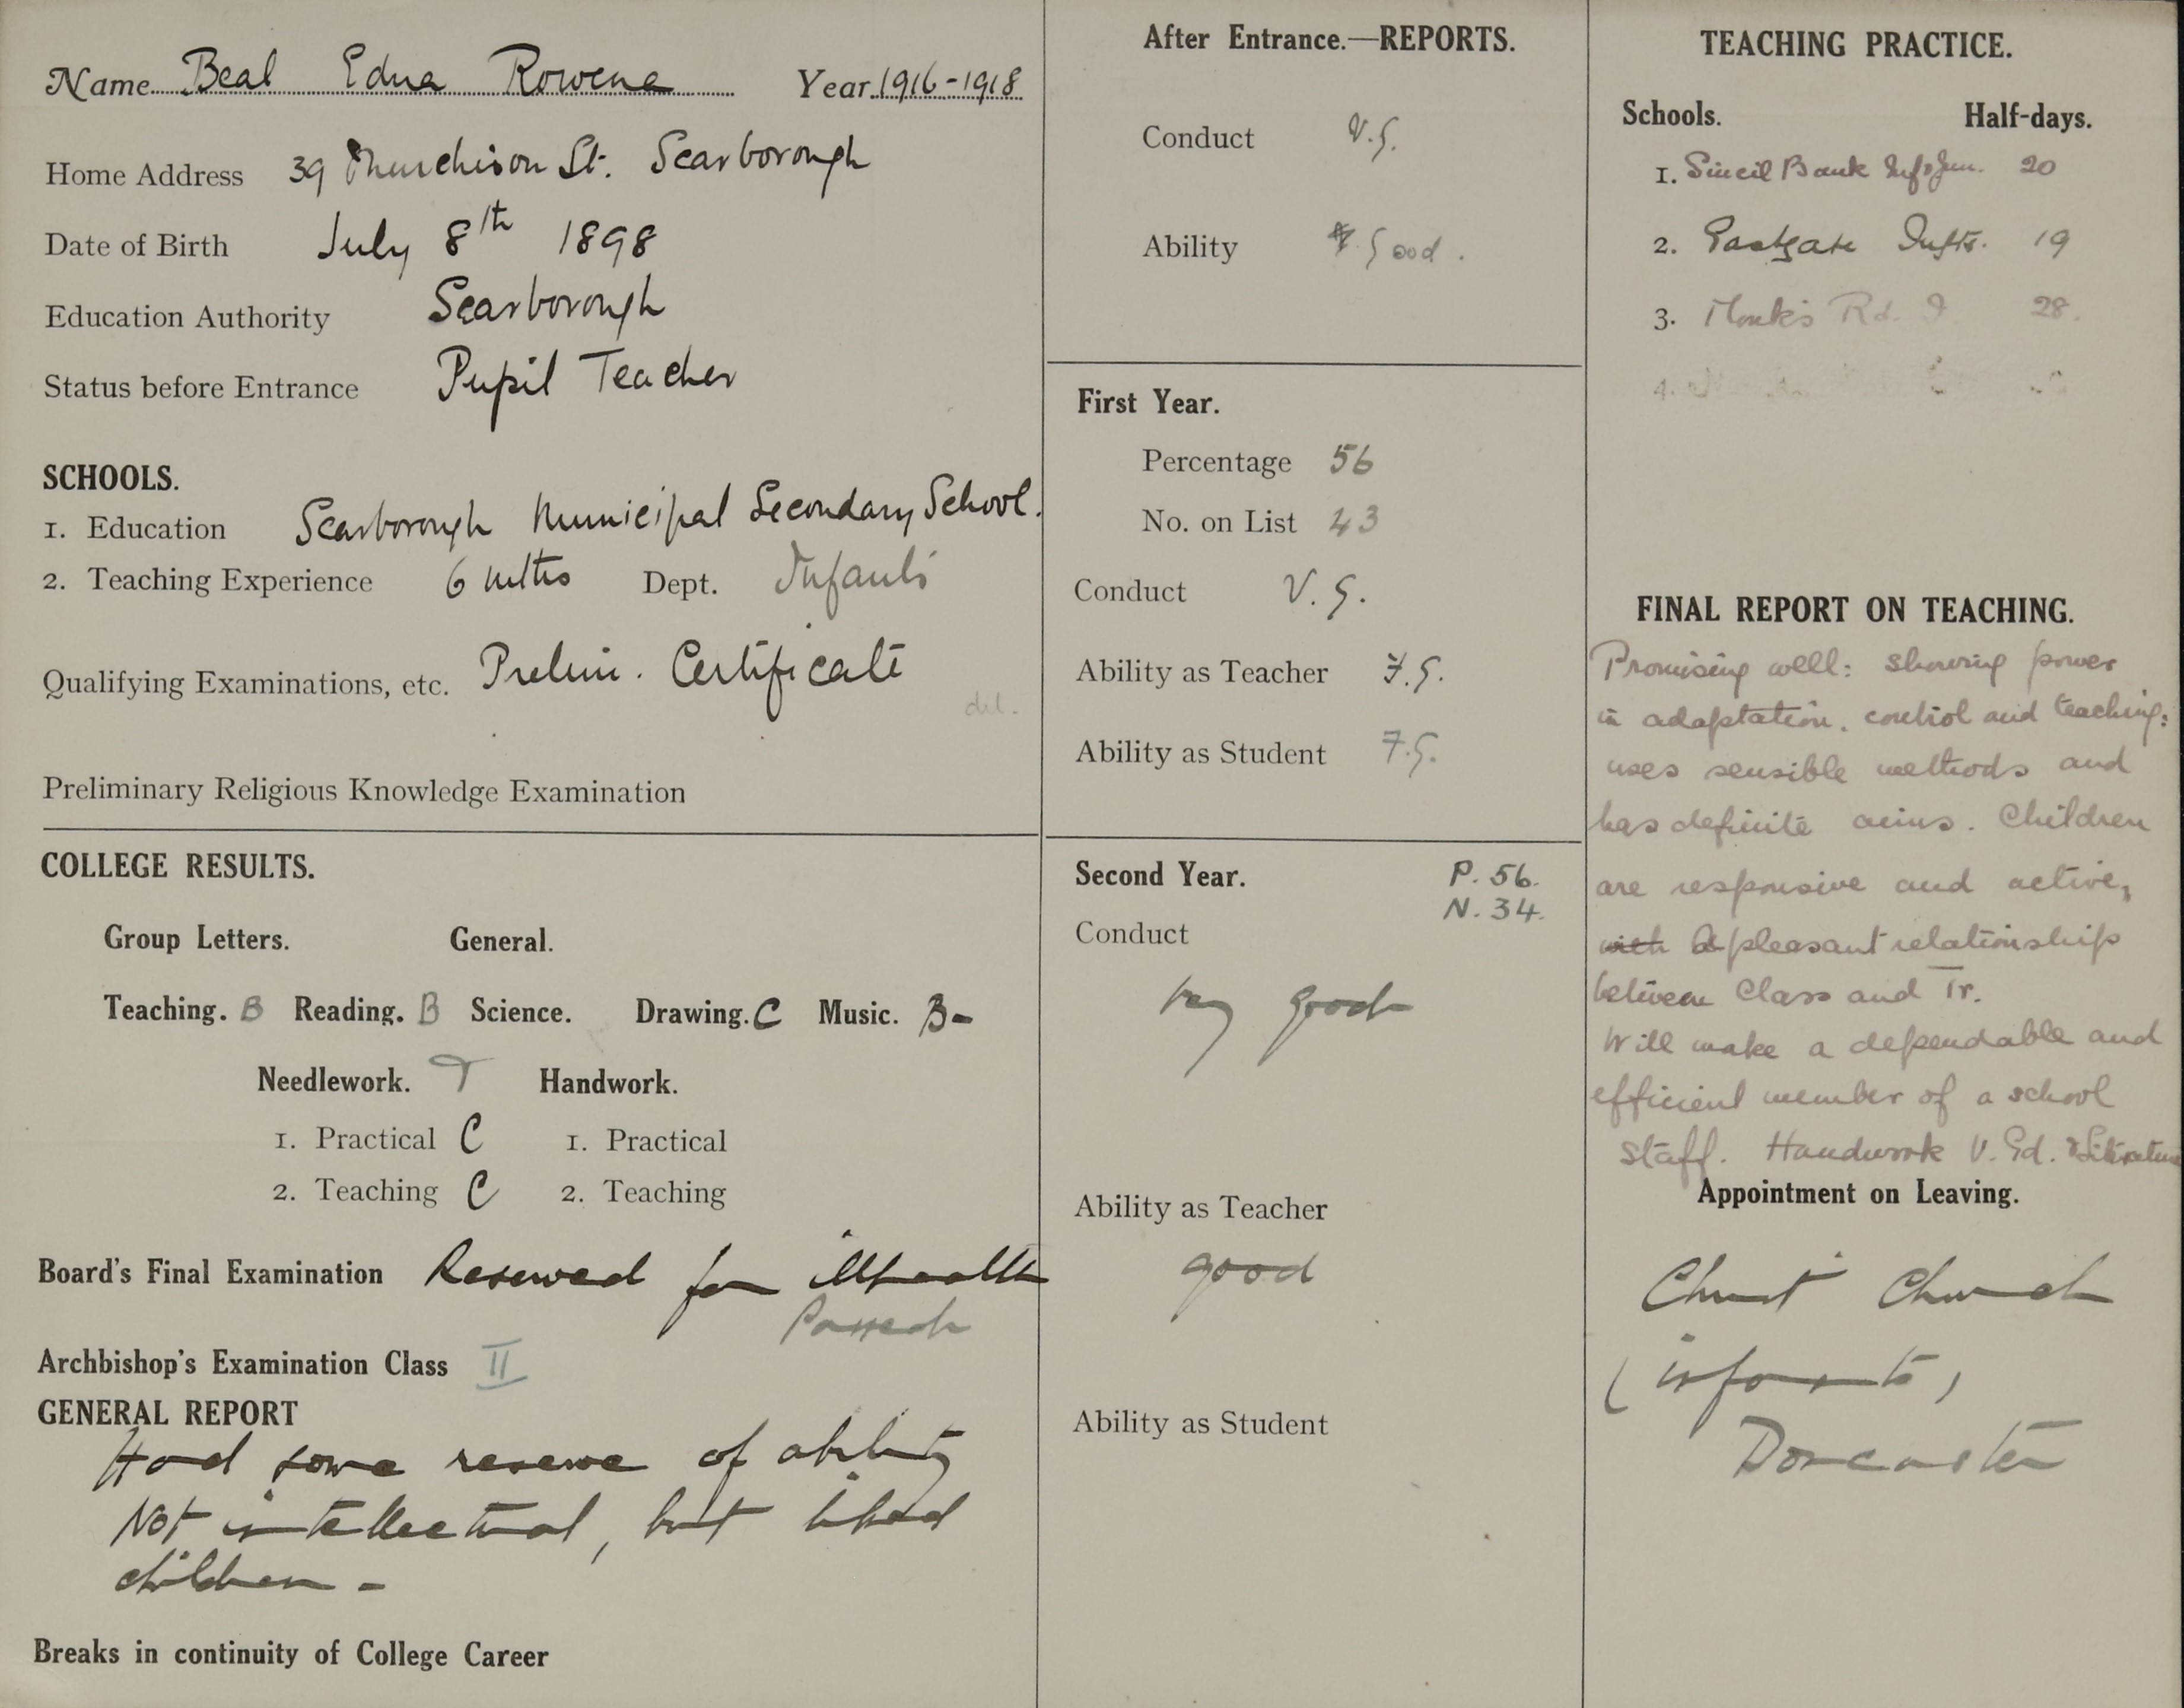 Name Beal Edna Rowena Year 1916-1918
Home Address 39 Murchison St. Scarborough
Date of Birth July 8th 1898
Education Authority Scarborough
Status before Entrance Pupil Teacher
SCHOOLS.
1. Education Scarborough Municipal Secondary School.
2. Teaching Experience 6 mths Dept. Infants
Qualifying Examinations, etc. Prelim. Certificate
Preliminary Religious Knowledge Examination
COLLEGE RESULTS.
Group Letters. General.
Teaching. B Reading. B Science. Drawing. C Music. B-
Needlework. T Handwork.
1. Practical C 1. Practical
2. Teaching C 2. Teaching
Board's Final Examination Reserved for illhealth
Passed
Archbishop's Examination Class II
GENERAL REPORT
Had some reserve of ability
Not intellectual, but liked
children -
Breaks in continuity of College Career
After Entrance.—REPORTS.
Conduct V.G.
Ability Good.
First Year.
Percentage 56
No. on List 43
Conduct V.G.
Ability as Teacher F.G.
Ability as Student F.G.
Second Year. P. 56.
N. 34.
Conduct
Very good
Ability as Teacher
good
Ability as Student
TEACHING PRACTICE.
Schools. Half-days.
1. Sincil Bank Inf & Jun. 20
2. Eastgate Infts. 19
3. Monks Rd. I. 28.
4.
FINAL REPORT ON TEACHING.
Promising well: showing power
in adaptation, control and teaching:
uses sensible methods and
has definite aims. Children
are responsive and active,
with a pleasant relationship
between Class and Tr.
Will make a dependable and
efficient member of a school
staff. Handwork V. Gd. & Literature
Appointment on Leaving.
Christ Church
(infants)
Doncaster